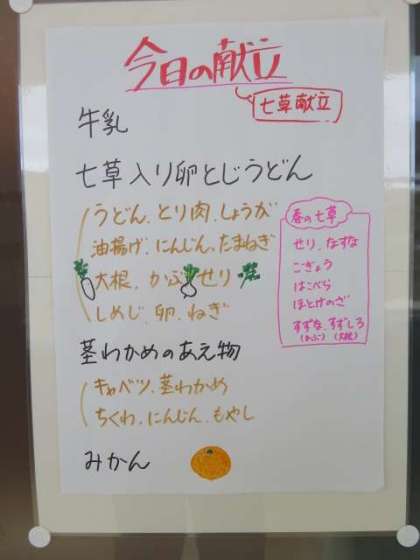 今日の献立
七草献立
牛乳
七草入り卵とじうどん
うどん、とり肉、しょうが
油揚げ、にんじん、たまねぎ
大根、かぶ、せり
しめじ、卵、ねぎ
春の七草
せり、なずな
ごぎょう
はこべら
ほとけのざ
すずな、すずしろ
(かぶ) (大根)
茎わかめのあえ物
キャベツ、茎わかめ
ちくわ、にんじん、もやし
みかん